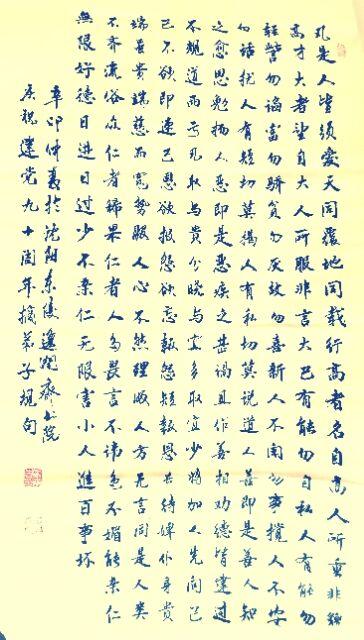 凡是人皆须爱天同覆地同载行高者名自高人所重非貌
高才大者望自大人所服非言大己有能勿自私人有能勿
轻訾勿谄富勿骄贫勿厌故勿喜新人不闲勿事搅人不安
勿话扰人有短切莫揭人有私切莫说道人善即是善人知
之愈思勉扬人恶即是恶疾之甚祸且作善相劝德皆建过
不规道两亏凡取与贵分晓与宜多取宜少将加人先问己
己不欲即速已恩欲报怨欲忘報怨短報恩长待婢仆身贵
端虽贵端慈而宽势服人心不然理服人方无言同是人类
不齐流俗众仁者稀果仁者人多畏言不讳色不媚能亲仁
無限好德日进日过少不亲仁无限害小人進百事坏
辛卯仲夏於沈阳东陵斋书院
庆祝建党九十周年摘弟子规句